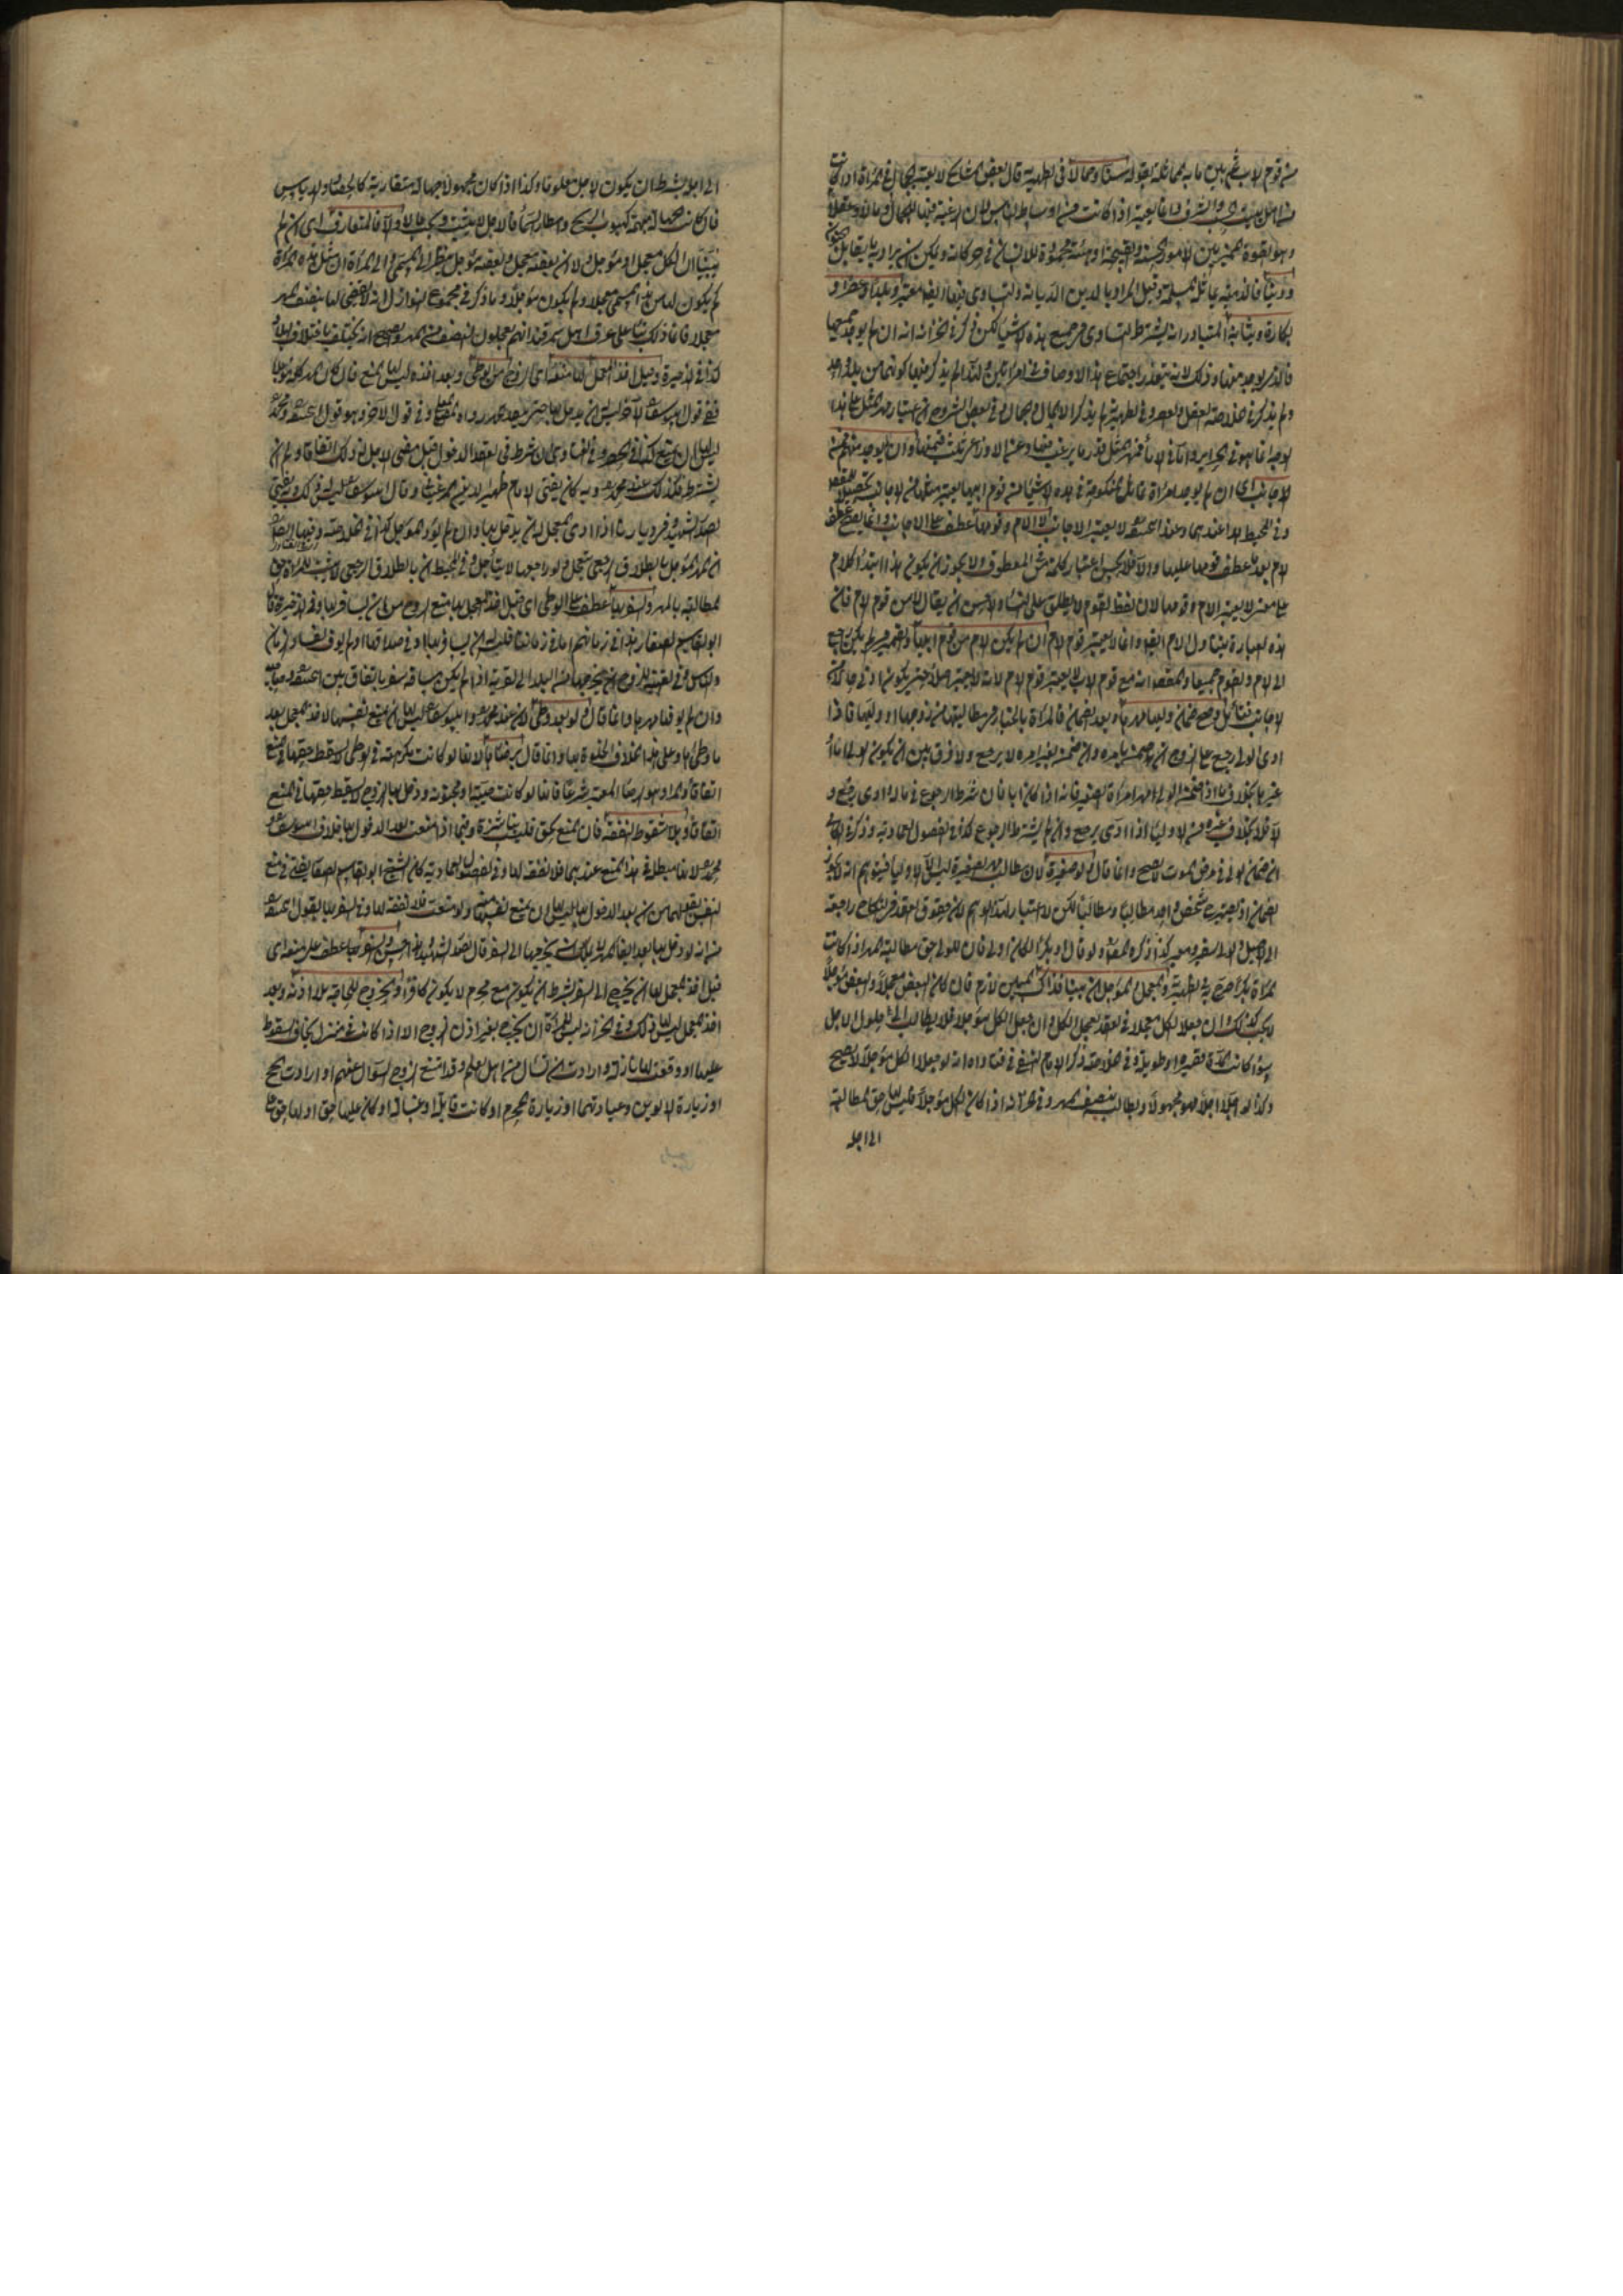 من قوم الاب ثم بين ما به المماثلة بقوله سنا وجمالا في الظهيرية قال بعض المشايخ لا يعتبر الجمال في المرأة اذا كانت
من اهل بيت الحسب والشرف وانما يعتبر اذا كانت من اوساط الناس لان الرغبة فيها للجمال ومالا وعقلا
وهو القوة المميزة بين الامور الحسنة والقبيحة او هيئة محمودة للانسان في حركاته ويمكن ان يراد به ما يقابل الجنون
ودينا فالذمية يماثل المسلمة وقيل المراد بالدين الديانة والتساوي فيها ايضا معتبر وبلدا وعصرا و
بكارة وثيابة المتبادر انه يشترط التساوي في جميع هذه الاشياء لكن ذكر في الخزانة انه ان لم يوجد جميعها
فالذي يوجد منها وذلك لانه يتعذر اجتماع هذه الاوصاف في امرأتين
ولم يذكر في الخلاصة العقل والعصر وفي الظهيرية لم يذكر الا المال والجمال وفي بعض الشروح ان اعتبار مهر المثل على هذا
الوجه انما هو في الحرائر واما في الاماء فمهر المثل بقدر ما يرغب فيها وعن الاوزاعي ثلث قيمتها وان لم يوجد منهم فمن
الاجانب اي ان لم يوجد امرأة يماثل المنكوحة في هذه الاشياء من قوم ابيها يعتبر مثلها من الاجانب
وفي المحيط هذا عندهما وعند ابي حنيفة لا يعتبر الاجانب لا الام وقومها عطف على الاجانب وانما يصح عطف
الام بعد عطف قومها عليها والا
على معنى لا يعتبر الام وقومها لان لفظ القوم لا يطلق على النساء والاحسن ان يقال لا من قوم الام فان
هذه العبارة يتناول الام ايضا وانما لا يعتبر قوم الام ان لم يكن الام من قوم ابيها
الى الام والقوم جميعا والمقصد انه مع قوم الاب لا يعتبر قوم الام
الاجانب وصح ضمان وليها مهرها وبعد الضمان فالمرأة بالخيار في مطالبتها من زوجها او وليها فاذا
ادى الولي رجع على الزوج ان ضمن بامره وان ضمن بغير امره لا يرجع ولا فرق بين ان يكون الولي ابا او
غيره بخلاف ما اذا ضمن الولي مهر امرأة الصغير فانه اذا كان ابا فان شرط الرجوع في ماله وادى يرجع و
الا فلا بخلاف غيره من الاولياء اذا ادى يرجع وان لم يشترط الرجوع كذا في الفصول العمادية
ان ضمان الولي في مرض الموت لا يصح وانما قال ولو صغيرة لان مطالب مهر الصغيرة ليس الا الاولياء فيتوهم انه لا يجوز
الضمان اذ يصير شخص واحد مطالبا ومطالبا لكن لا اعتبار لهذا الوهم لان حقوق العقد في النكاح راجعة
الى الاصيل ولو قال او بكرا لكان اولى فان للولي حق مطالبة المهر اذا كانت
المرأة بكرا صرح به في الظهيرية والمعجل والمؤجل ان بينا فذاك اي المبين لازم فان كان البعض معجلا والبعض مؤجلا
يجب كذلك وان جعلا الكل معجلا في العقد يعجل الكل وان جعل الكل مؤجلا فلا يطالب الى حلول الاجل
سواء كانت المدة قصيرة او طويلة وفي الخلاصة ذكر الامام النسفي في فتاواه انه لو جعلا الكل مؤجلا لا يصح
وكذا لو اجلا اجلا فهو مجهولا ويطالب بنصف المهر وفي الخزانة اذا كان الكل مؤجلا فليس لها حق المطالبة
الى اجله
الى اجله بشرط ان يكون الاجل معلوما وكذا اذا كان مجهولا جهالة متقاربة كالحصاد والدياس
فان كانت جهالة مبهمة كهبوب الريح وامطار السماء فالاجل لا يثبت ويجب حالا والا فالمتعارف اي ان لم
يبينا ان الكل معجل او مؤجل او ان بعضه معجل وبعضه مؤجل ينظر الى المسمى والى المرأة ان مثل هذه المرأة
كم يكون لها من هذا المسمى معجلا وكم يكون مؤجلا وما ذكر في مجموع النوازل انه يقضى لها بنصف المهر
معجلا فانما ذلك بناء على عرف اهل سمرقند انهم يعجلون النصف من المهر والصحيح انه يختلف باختلاف البلاد
كذا في الذخيرة وقبل اخذ المعجل لها منعه اي الزوج من الوطئ وبعد اخذه ليس لها المنع فان كان المهر كله مؤجلا
ففي قول ابي يوسف الآخر ليس له ان يدخل بها حتى ينقد المهر وفي قول الآخر وهو قول ابي حنيفة ومحمد
ليس لها ان تمنع كذا في الحصر وفي الفتاوى ان شرط في العقد الدخول قبل مضي الاجل فله ذلك اتفاقا وان لم
يشترط فكذلك عند محمد وبه كان يفتي الامام ظهير الدين المرغيناني وقال ابو يوسف ليس له ذلك وبه يفتي
الصدر الشهيد اذا ادى المعجل له ان يدخل بها وان لم يؤد المؤجل كذا في الخلاصة وفيها ايضا
ان المهر المؤجل بالطلاق الرجعي يتعجل ولو راجعها لا يتأجل وفي المحيط ان بالطلاق الرجعي لا يثبت للمرأة حق
المطالبة بالمهر والسفر بها عطف على الوطئ اي قبل اخذ المعجل لها منع الزوج من ان يسافر بها وفي الذخيرة قال
ابو القاسم الصفار هذا في زمانهم اما في زماننا فليس له ان يسافر بها وان اوفى صداقها او لم يوف لفساد الزمان
والناس وفي الغنية للزوج ان يخرجها من البلد الى القرية اذا لم يكن مسافة سفر باتفاق بين
وان لم يوفها مهرها وانما قال ولو بعد وطئ لان عند محمد وابي يوسف ليس لها ان تمنع نفسها لاخذ المعجل بعد
ما وطئها وعلى هذا الخلاف الخلوة بها وانما قال برضاها لانها لو كانت مكرهة في الوطئ لا يسقط حقها في المنع
اتفاقا والمراد هو الرضاء المعتبر شرعا فانها لو كانت صبية او مجنونة ودخل بها الزوج لا يسقط حقها في المنع
اتفاقا وبلا سقوط النفقة فان المنع بحق فليست بناشزة وفيما اذا منعت بعد الدخول بها خلاف ابي يوسف و
محمد لانها مبطلة في هذا المنع عندهما فلا نفقة لها وفي الفصول العمادية كان الشيخ ابو القاسم الصفار يفتي في منع
النفس بقولهما من ان بعد الدخول بها ليس لها ان تمنع نفسها ولو منعت فلا نفقة لها وفي السفر بها بقول ابي حنيفة
من انه لو دخل بها بعد ايفاء المهر لا يملك ان يخرجها الى السفر قال الصدر الشهيد هذا حسن والسفر بها عطف على منعه اي
قبل اخذ المعجل لها ان يخرج الى السفر بشرط ان يكون مع محرم لا يكون كافرا والخروج للحاجة بلا اذنه وبعد
اخذ المعجل ليس لها ذلك وفي الخزانة ليس للمرأة ان يخرج بغير اذن الزوج الا اذا كانت في منزل يخاف السقوط
عليها او وقعت لها نازلة وارادت ان تسأل من اهل العلم وقد امتنع الزوج السؤال عنهم او ارادت الحج
او زيارة الابوين وعيادتهما او زيارة المحرم او كانت قابلة او غسالة او كان عليها حق او لها حق على